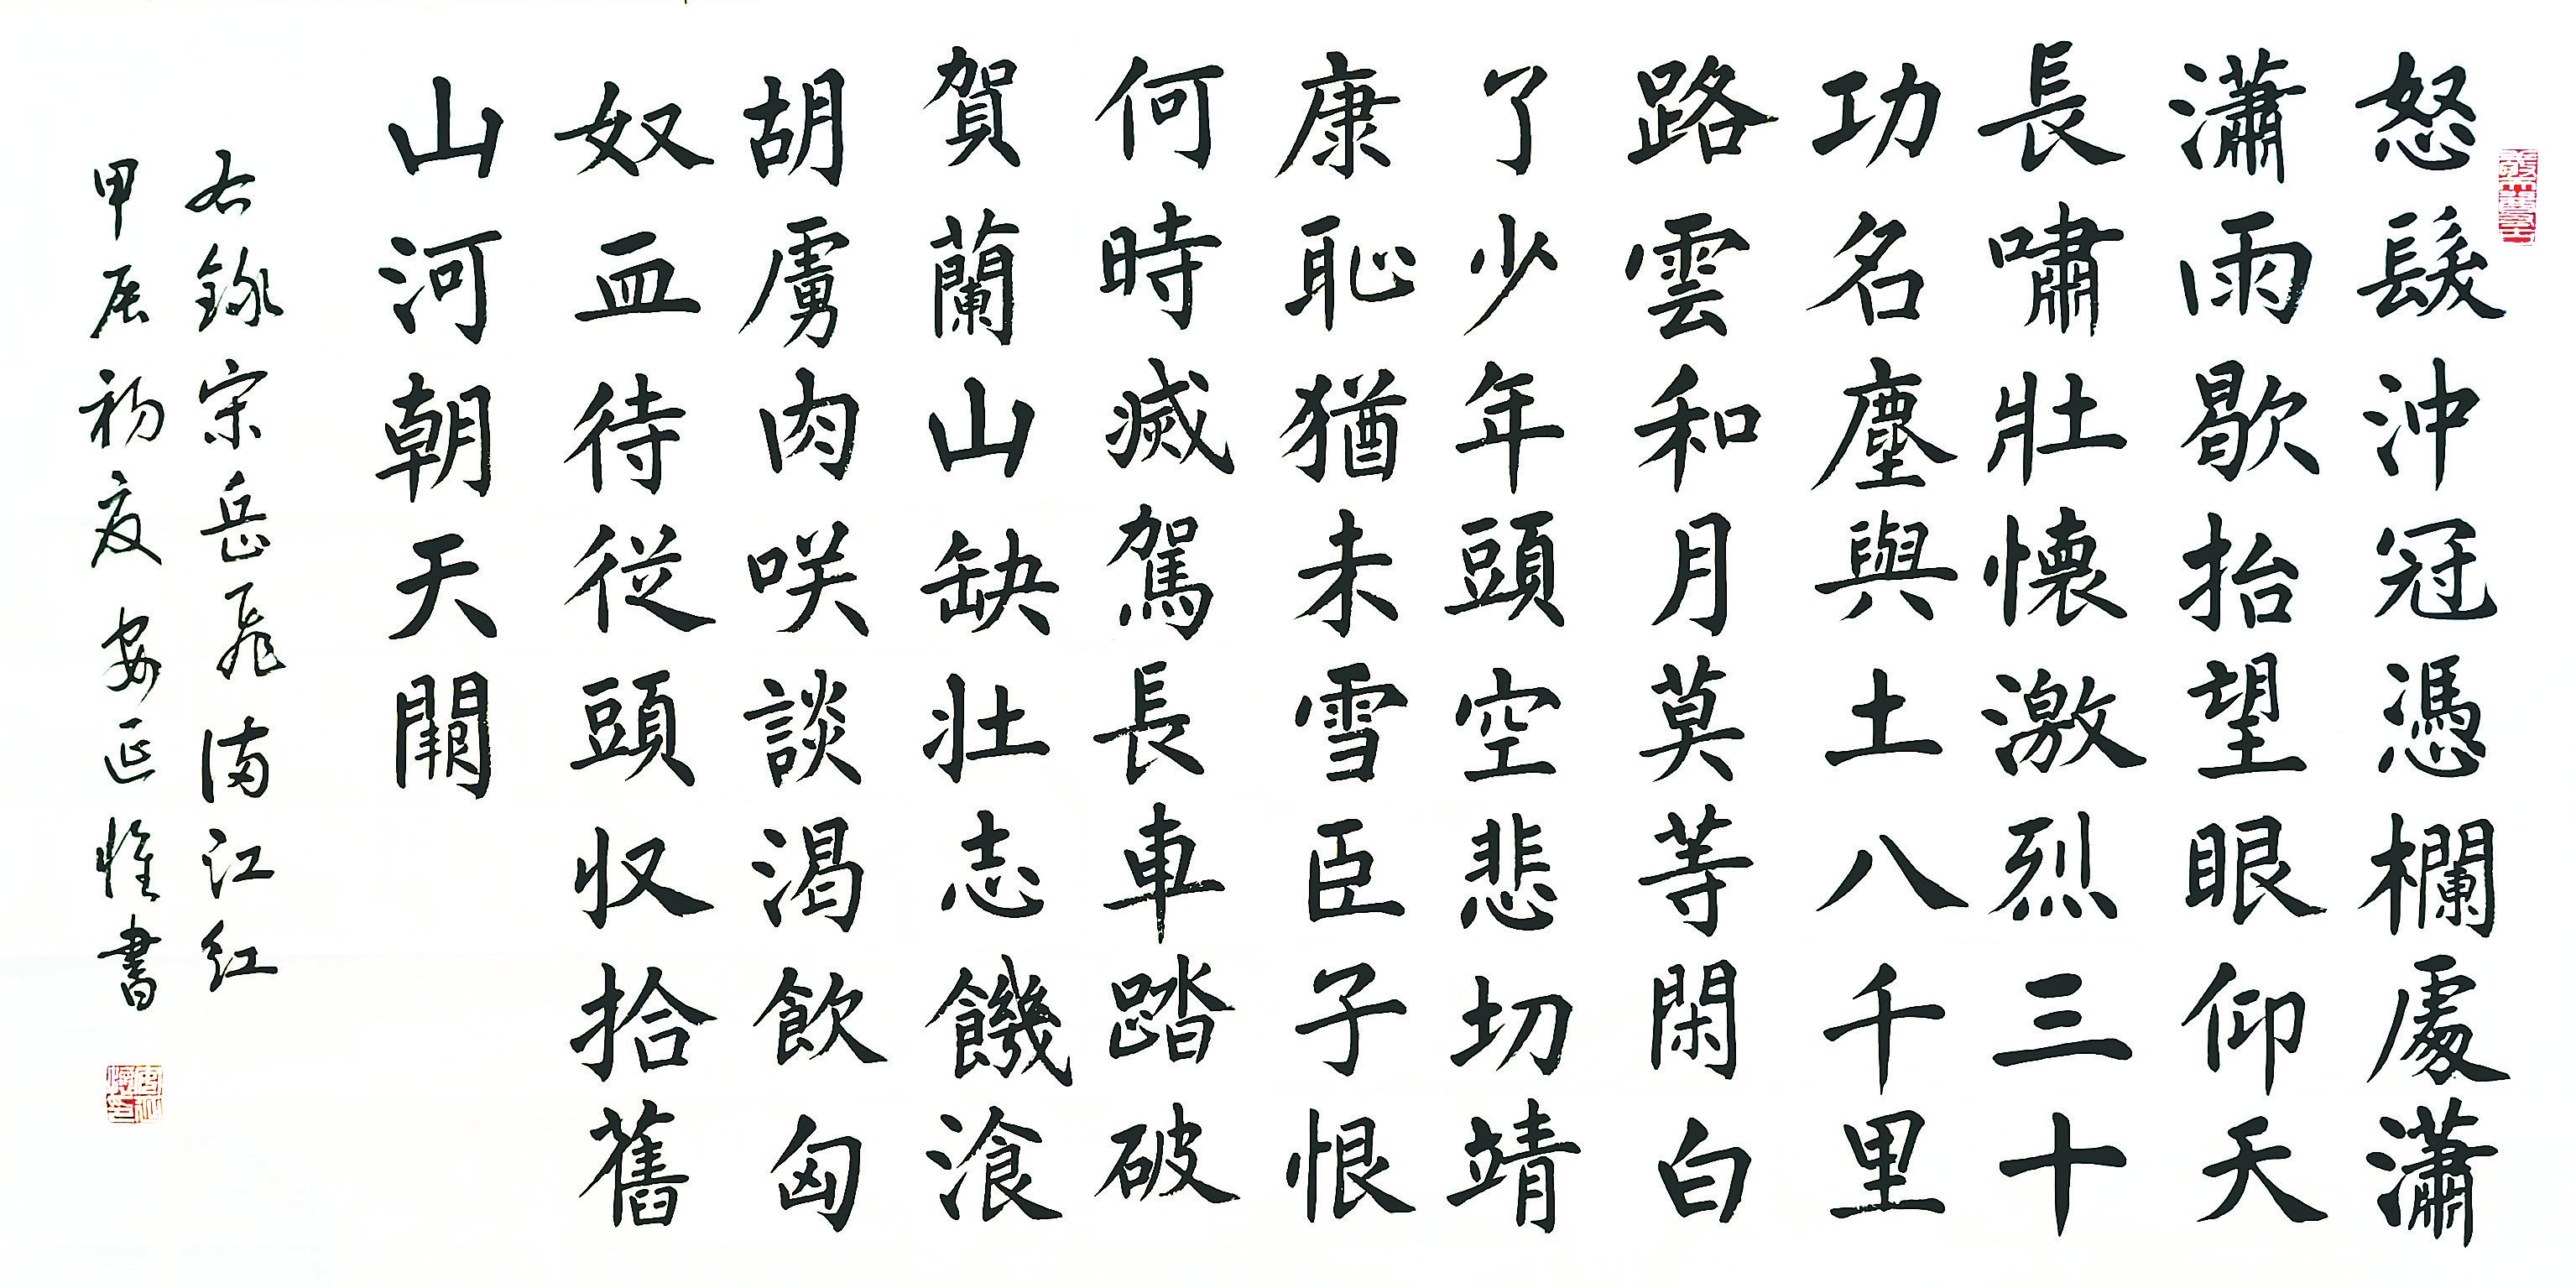 怒髮沖冠憑欄處瀟
瀟雨歇抬望眼仰天
長嘯壯懷激烈三十
功名塵與土八千里
路雲和月莫等閑白
了少年頭空悲切靖
康恥猶未雪臣子恨
何時滅駕長車踏破
賀蘭山缺壯志饑飡
胡虜肉咲談渴飲匈
奴血待從頭収拾舊
山河朝天闕
右錄宋岳飛滿江紅
甲辰初夏安延惟書